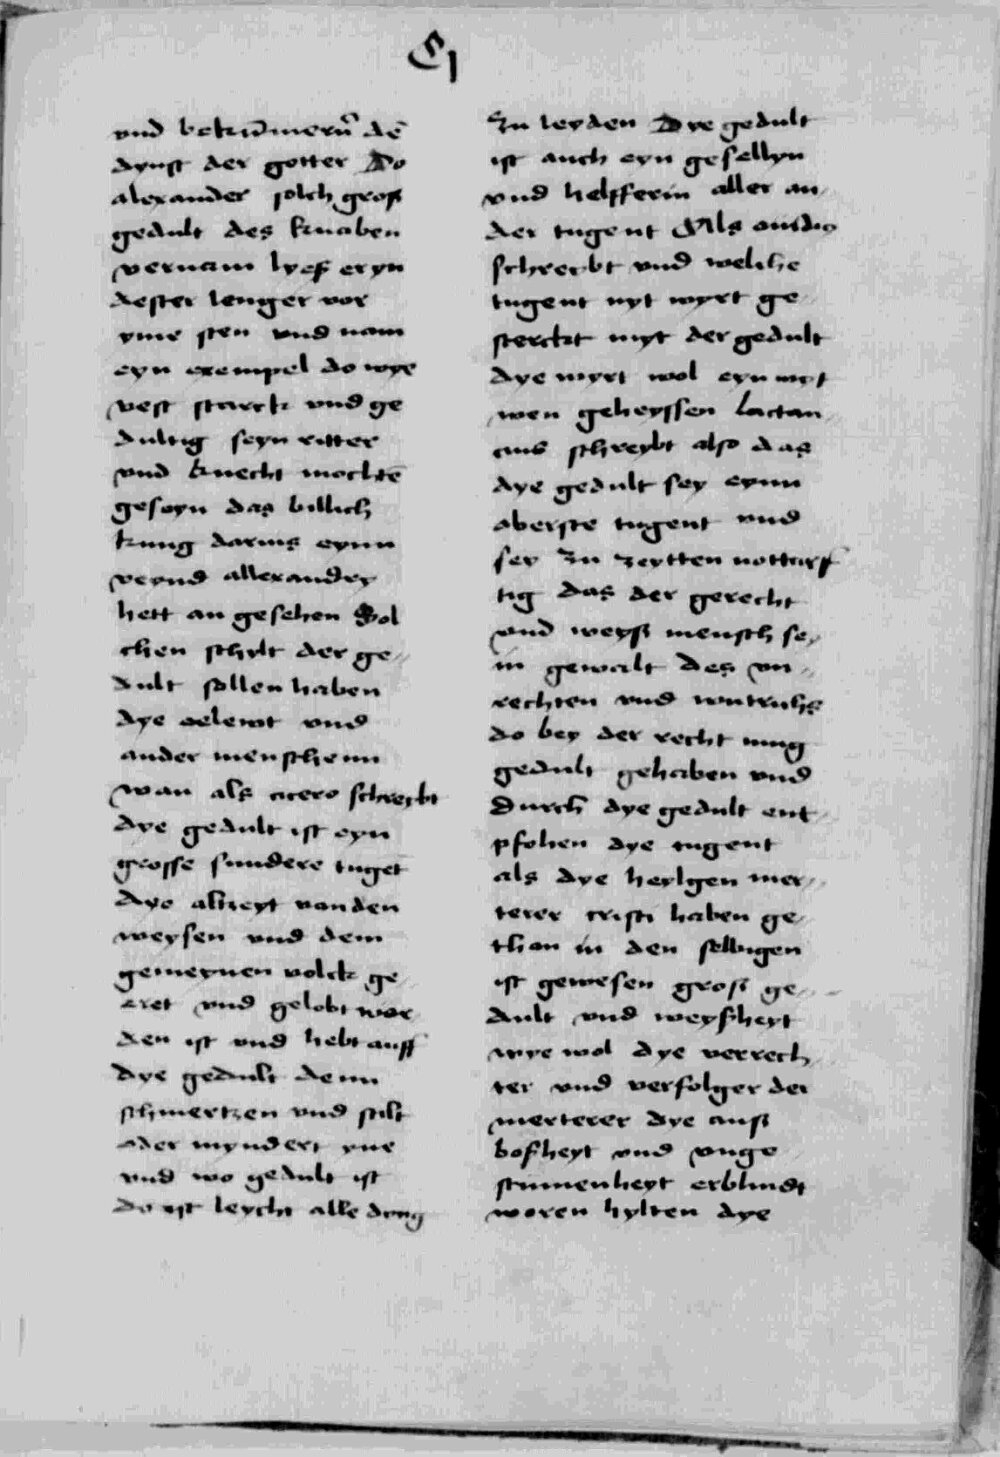 vnd bekũmern dē
dynst der gotter Do
alexander solch groß
gedult des knaben
vernam lyeß eryn
dester lenger vor
yme sten vnd nam
eyn exempel do wye
vest starck vnd ge
dultig seyn ritter
vnd knecht mochtē
geseyn das billich
kung darius eynn
veynd allexandry
hett an gesehen Sol
chen schylt der ge„
dult sollen haben
dye vnd
ander menschenn
wan als cicero schreybt
dye gedult ist eyn
grosse sundere tuget
dye alzeyt von den
weysen vnd dem
gemeynen volck ge
eret vnd gelobt wor
den ist vnd hebt auff
dye gedult denn
schmertzen vnd stilt
oder myndert yne
vnd wo gedult ist
do ist leycht alle dyng
zu leyden Dye gedult
ist auch eyn gesellyn
vnd helfferin aller an„
der tugent Als
schreybt vnd welche
tugent nyt wyrt ge„
sterckt myt der gedult
dye wyrt wol eyn wyt
wen geheyssen lactan„
cius schreybt also das
dye gedult sey eynn
oberste tugent vnd
sey zu zeytten notturf
tig das der gerecht
vnd weyß mensch se„
in gewalt des vn„
rechten vnd
do bey der recht mug
gedult gehaben vnd
durch dye gedult ent„
pfohen dye tugent
als dye heylgen mer„
terer cristi haben ge„
thon in den selbigen
ist gewesen groß ge„
dult vnd weyßheyt
wye wol dye verech„
ter vnd verfolger der
merterer dye auß
boßheyt vnd vnge„
stumenheyt erblindt
woren hylten dye